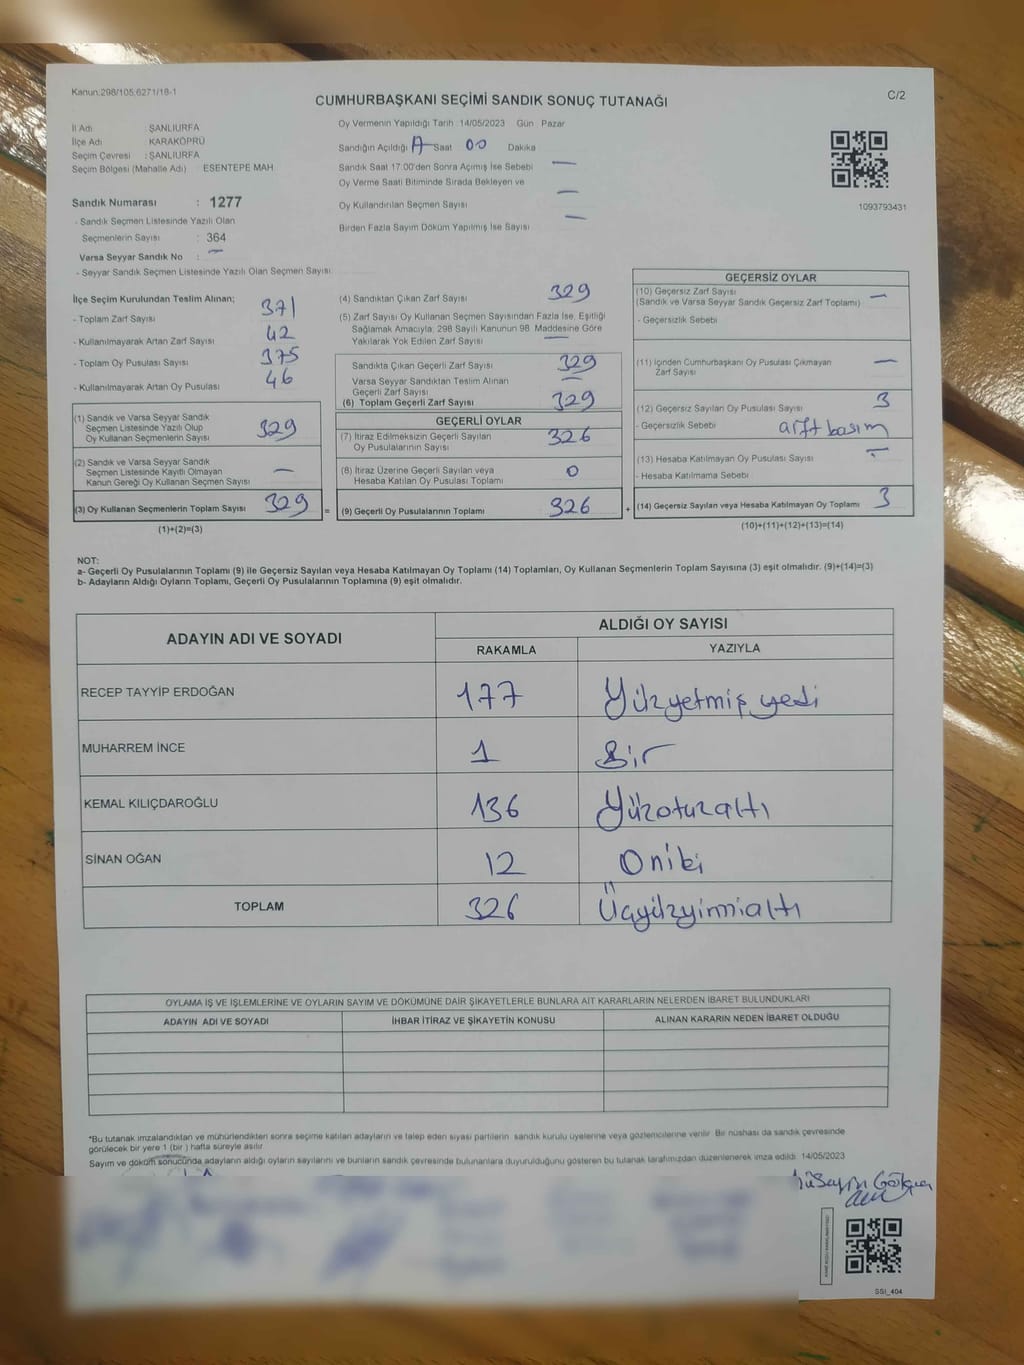 Kanun:298/105;6271/18-1
C/2
CUMHURBAŞKANI SEÇİMİ SANDIK SONUÇ TUTANAĞI
İl Adı : ŞANLIURFA
İlçe Adı : KARAKÖPRÜ
Seçim Çevresi : ŞANLIURFA
Seçim Bölgesi (Mahalle Adı) : ESENTEPE MAH.
Sandık Numarası : 1277
- Sandık Seçmen Listesinde Yazılı Olan
Seçmenlerin Sayısı : 364
Varsa Seyyar Sandık No : —
- Seyyar Sandık Seçmen Listesinde Yazılı Olan Seçmen Sayısı
Oy Vermenin Yapıldığı Tarih :14/05/2023 Gün Pazar
Sandığın Açıldığı Saat 00 Dakika
Sandık Saat 17:00'den Sonra Açılmış İse Sebebi —
Oy Verme Saati Bitiminde Sırada Bekleyen ve —
Oy Kullandırılan Seçmen Sayısı
Birden Fazla Sayım Döküm Yapılmış İse Sayısı —
1093793431
İlçe Seçim Kurulundan Teslim Alınan;
- Toplam Zarf Sayısı 371
- Kullanılmayarak Artan Zarf Sayısı 42
- Toplam Oy Pusulası Sayısı 375
- Kullanılmayarak Artan Oy Pusulası 46
(1) Sandık ve Varsa Seyyar Sandık
Seçmen Listesinde Yazılı Olup
Oy Kullanan Seçmenlerin Sayısı 329
(2) Sandık ve Varsa Seyyar Sandık
Seçmen Listesinde Kayıtlı Olmayan
Kanun Gereği Oy Kullanan Seçmen Sayısı —
(3) Oy Kullanan Seçmenlerin Toplam Sayısı 329 =
(1)+(2)=(3)
(4) Sandıktan Çıkan Zarf Sayısı 329
(5) Zarf Sayısı Oy Kullanan Seçmen Sayısından Fazla İse, Eşitliği
Sağlamak Amacıyla, 298 Sayılı Kanunun 98. Maddesine Göre
Yakılarak Yok Edilen Zarf Sayısı —
Sandıkta Çıkan Geçerli Zarf Sayısı 329
Varsa Seyyar Sandıktan Teslim Alınan —
Geçerli Zarf Sayısı
(6) Toplam Geçerli Zarf Sayısı 329
GEÇERLİ OYLAR
(7) İtiraz Edilmeksizin Geçerli Sayılan 326
Oy Pusulalarının Sayısı
(8) İtiraz Üzerine Geçerli Sayılan veya 0
Hesaba Katılan Oy Pusulası Toplamı
(9) Geçerli Oy Pusulalarının Toplamı 326 +
GEÇERSİZ OYLAR
(10) Geçersiz Zarf Sayısı —
(Sandık ve Varsa Seyyar Sandık Geçersiz Zarf Toplamı)
- Geçersizlik Sebebi
(11) İçinden Cumhurbaşkanı Oy Pusulası Çıkmayan —
Zarf Sayısı
(12) Geçersiz Sayılan Oy Pusulası Sayısı 3
- Geçersizlik Sebebi
(13) Hesaba Katılmayan Oy Pusulası Sayısı —
- Hesaba Katılmama Sebebi
(14) Geçersiz Sayılan veya Hesaba Katılmayan Oy Toplamı 3
(10)+(11)+(12)+(13)=(14)
NOT:
a- Geçerli Oy Pusulalarının Toplamı (9) ile Geçersiz Sayılan veya Hesaba Katılmayan Oy Toplamı (14) Toplamları, Oy Kullanan Seçmenlerin Toplam Sayısına (3) eşit olmalıdır. (9)+(14)=(3)
b- Adayların Aldığı Oyların Toplamı, Geçerli Oy Pusulalarının Toplamına (9) eşit olmalıdır.
ADAYIN ADI VE SOYADI ALDIĞI OY SAYISI
RAKAMLA YAZIYLA
RECEP TAYYİP ERDOĞAN 177 Yüzyetmiş yedi
MUHARREM İNCE 1 Bir
KEMAL KILIÇDAROĞLU 136 Yüzotuzaltı
SİNAN OĞAN 12 Oniki
TOPLAM 326 Üçyüzyirmialtı
OYLAMA İŞ VE İŞLEMLERİNE VE OYLARIN SAYIM VE DÖKÜMÜNE DAİR ŞİKAYETLERLE BUNLARA AİT KARARLARIN NELERDEN İBARET BULUNDUKLARI
ADAYIN ADI VE SOYADI İHBAR İTİRAZ VE ŞİKAYETİN KONUSU ALINAN KARARIN NEDEN İBARET OLDUĞU
*Bu tutanak imzalandıktan ve mühürlendikten sonra seçime katılan adayların ve talep eden siyasi partilerin sandık kurulu üyelerine veya gözlemcilerine verilir. Bir nüshası da sandık çevresinde
görülecek bir yere 1 (bir ) hafta süreyle asılır.
Sayım ve döküm sonucunda adayların aldığı oyların sayılarını ve bunların sandık çevresinde bulunanlara duyurulduğunu gösteren bu tutanak tarafımızdan düzenlenerek imza edildi. 14/05/2023
SSI_404